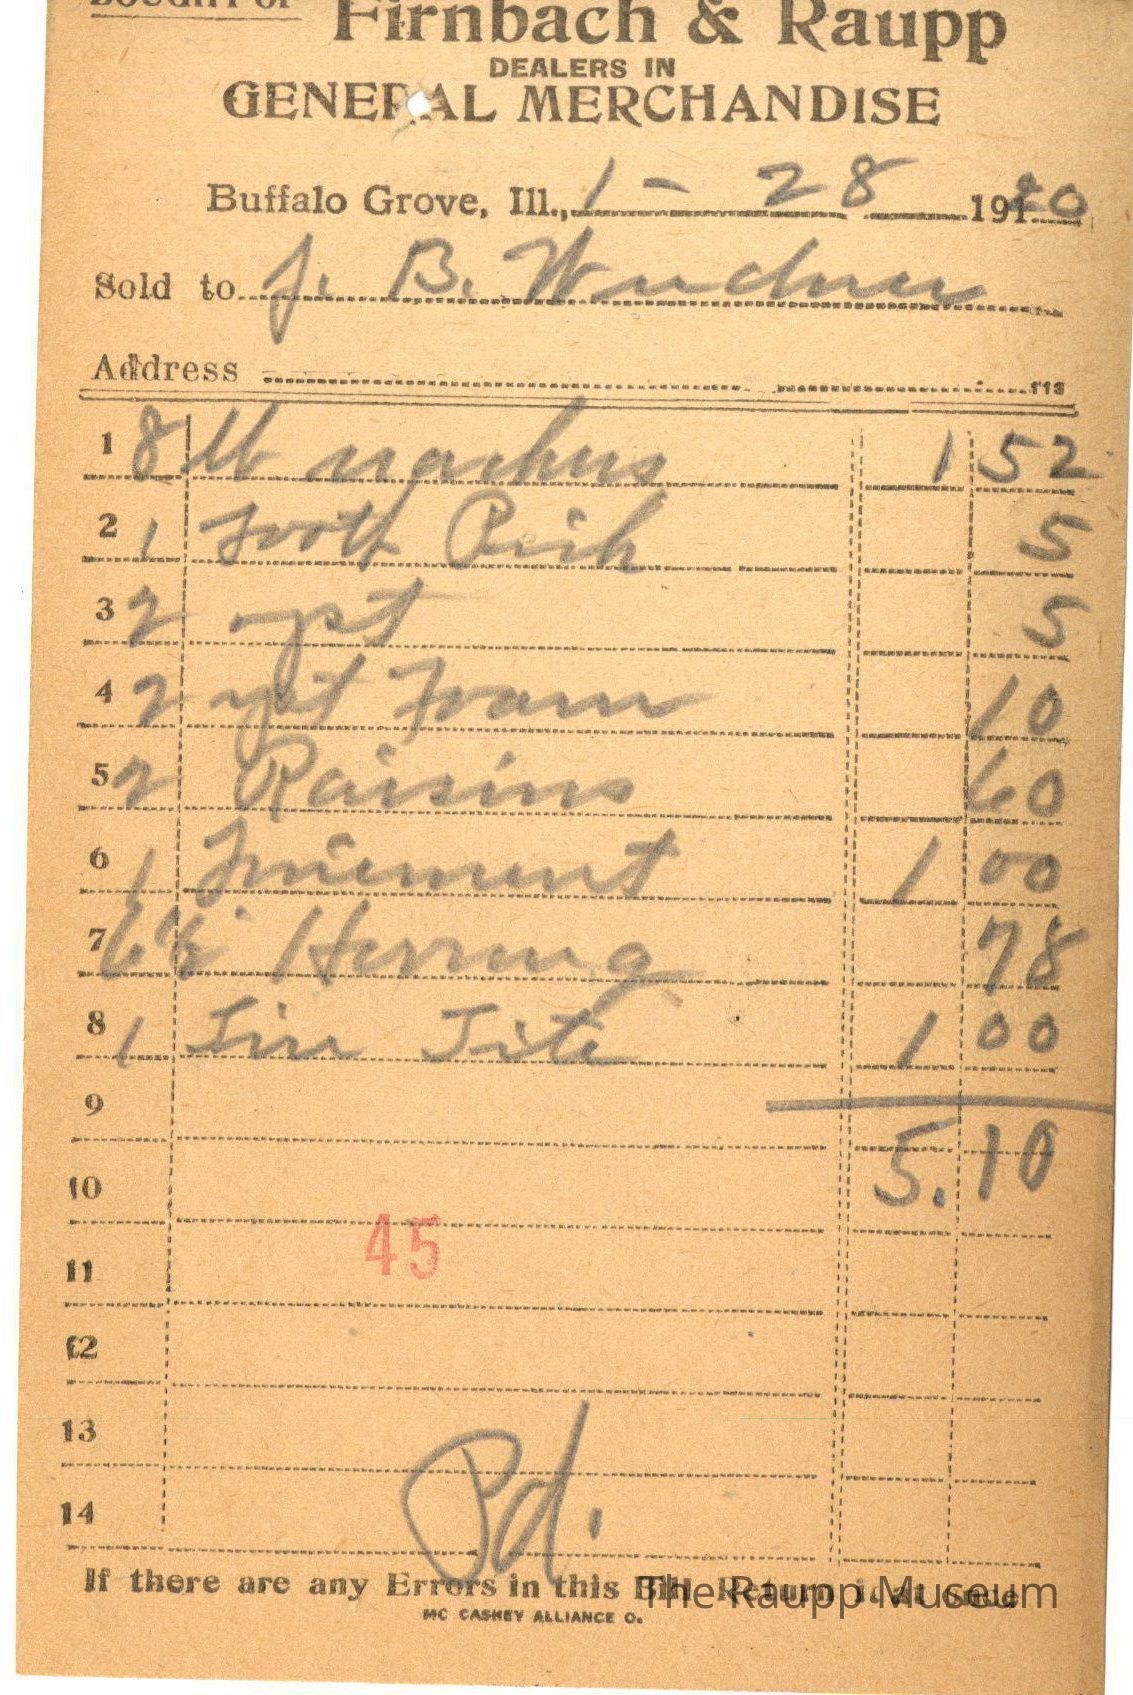 BOUGHT OF
Firnbach & Raupp
DEALERS IN
GENERAL MERCHANDISE
Buffalo Grove, Ill., 1 - 28 1920
Sold to J. B.
Address 113
1 8 lb 1 52
2 1 Tooth 5
3 2 5
4 2 Foam 10
5 2 Raisins 60
6 1 1 00
7 6 Herring 78
8 1 Tite 1 00
9
5.10
10
45
11
12
13
Pd.
14
If there are any Errors in this Bill Return it at once
MC CASKEY ALLIANCE O.
The Raupp Museum